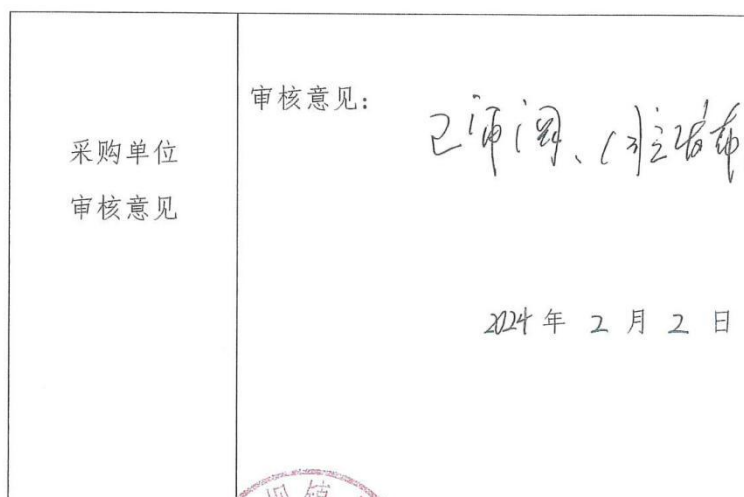 采购单位
审核意见
审核意见:
已审阅、同意发布
2024年2月2日
坝镇